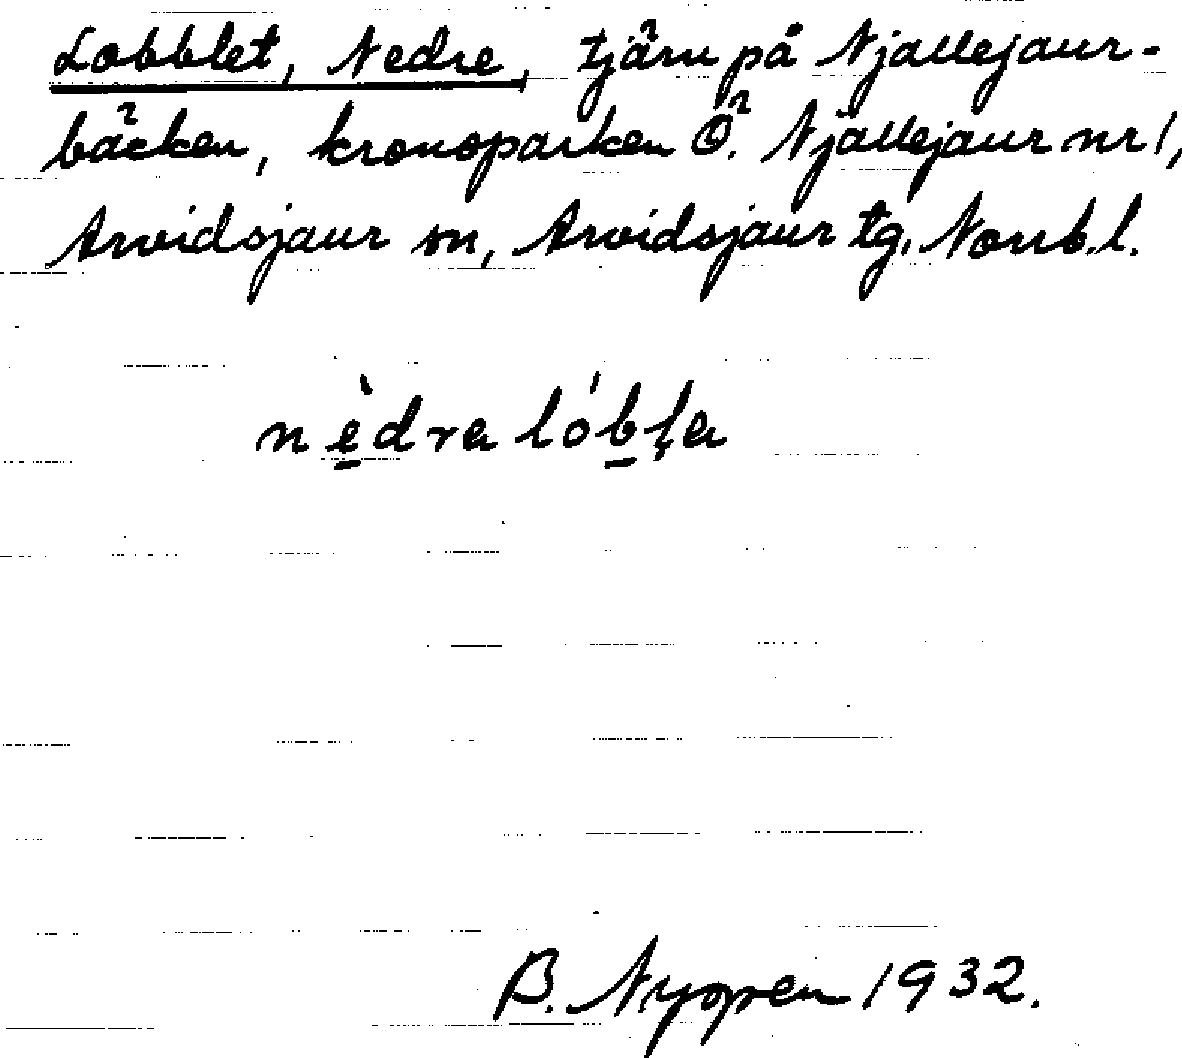 Lobblet, Nedre, tjärn på Njallejaur-
bäcken, kronoparken Ö. Njallejaur nr 1,
Arvidsjaur sn, Arvidsjaur tg, Norrb. l.
nèdra lóbḷa
B. Nygren 1932.